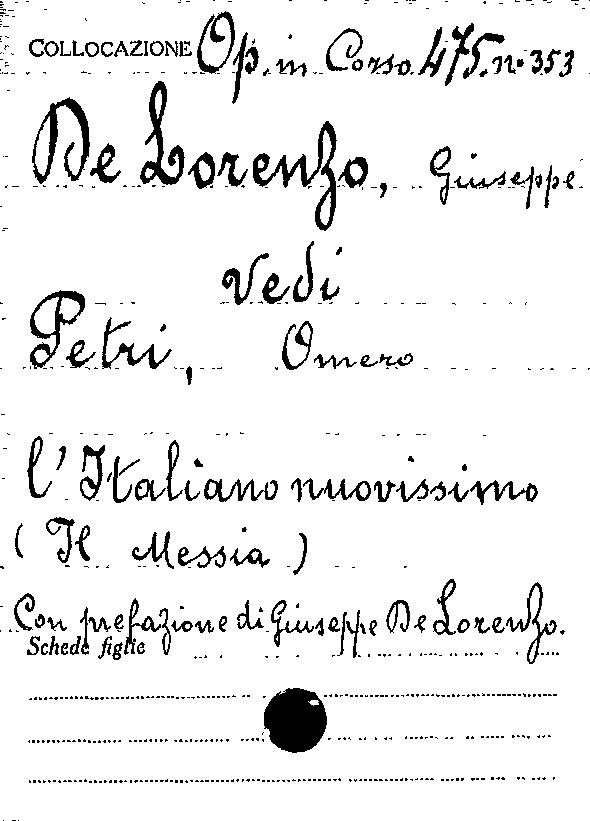 COLLOCAZIONE Op. in Corso 475. n. 353
De Lorenzo, Giuseppe
Vedi
Petri, Omero
l'Italiano nuovissimo
( Il Messia )
Con prefazione di Giuseppe De Lorenzo.
Schede figlie